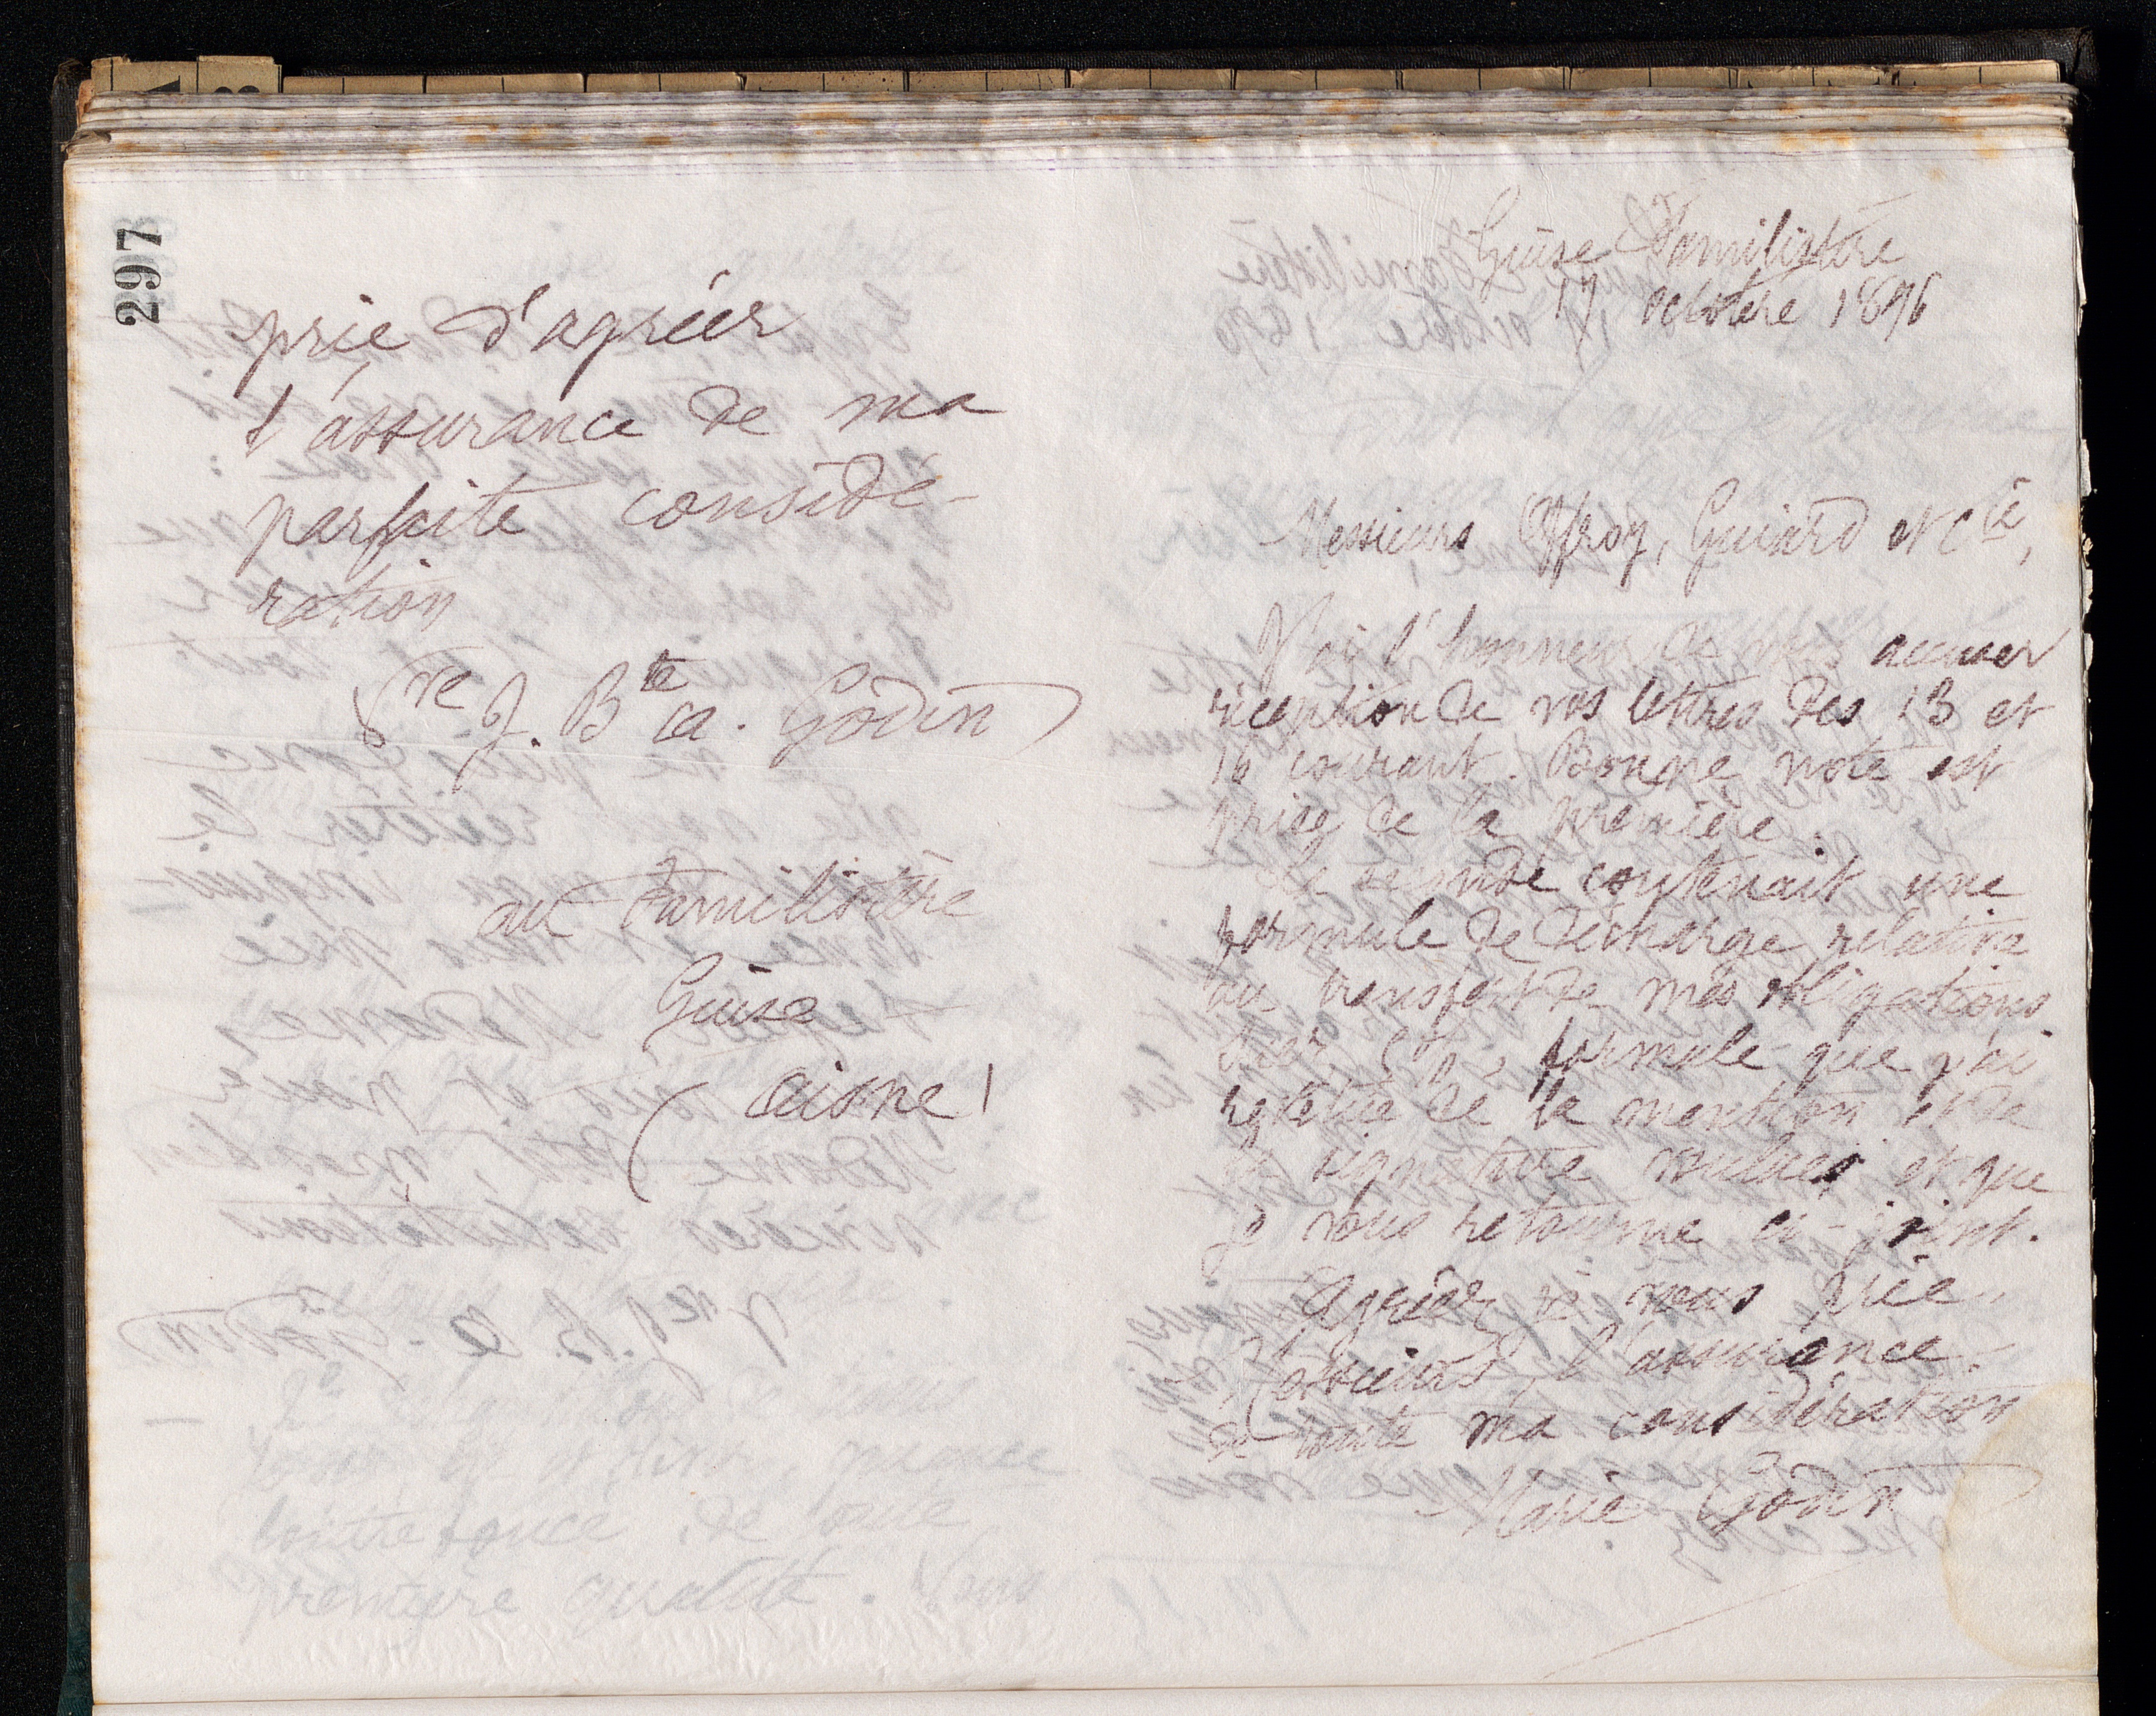 297
prie d'agréer
l'assurance de ma
parfaite considé-
ration
Vve J. Bte a. Godin
au Familistère
Guise
(Aisne)
Guise Familistère
17 octobre 1896
Messieurs Offroy, Guiard et Cie,
J'ai l'honneur de vous accuser
réception de vos lettres des 13 et
16 courant. Bonne note est
prise de la première.
La seconde contenait une
formule de décharge relative
au transfert de mes obligations
formule que j'ai
revêtue de la mention et de
la signature voulues et que
je vous retourne ci-joint.
Agréez je vous prie,
Messieurs, l'assurance
de toute ma considération
Marie Godin